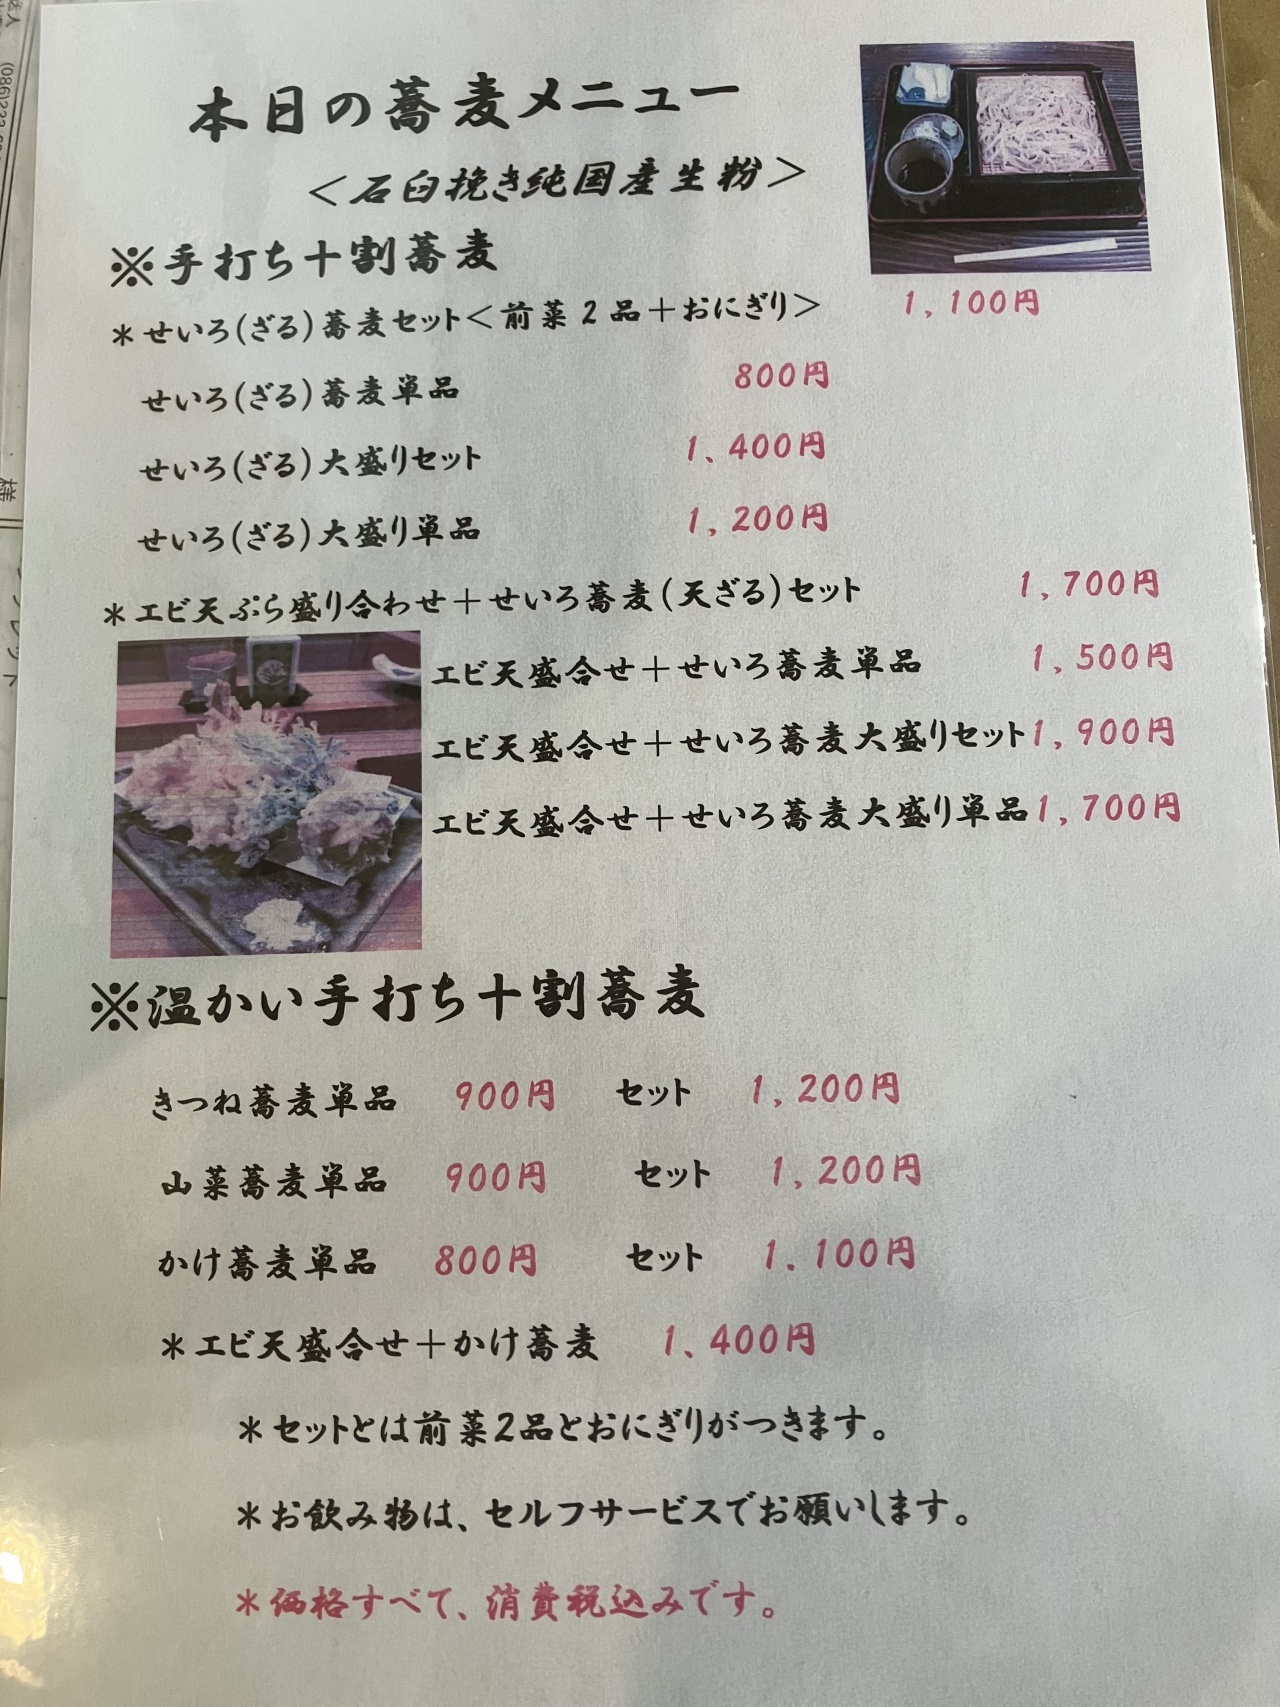 本日の蕎麦メニュー
＜石臼挽き純国産生粉＞
※手打ち十割蕎麦
＊せいろ(ざる)蕎麦セット＜前菜2品＋おにぎり＞ 1,100円
せいろ(ざる)蕎麦単品 800円
せいろ(ざる)大盛りセット 1、400円
せいろ(ざる)大盛り単品 1,200円
＊エビ天ぷら盛り合わせ＋せいろ蕎麦(天ざる)セット 1,700円
エビ天盛合せ＋せいろ蕎麦単品 1,500円
エビ天盛合せ＋せいろ蕎麦大盛りセット1,900円
エビ天盛合せ＋せいろ蕎麦大盛り単品1,700円
※温かい手打ち十割蕎麦
きつね蕎麦単品 900円 セット 1,200円
山菜蕎麦単品 900円 セット 1,200円
かけ蕎麦単品 800円 セット 1.100円
＊エビ天盛合せ＋かけ蕎麦 1、400円
＊セットとは前菜2品とおにぎりがつきます。
＊お飲み物は、セルフサービスでお願いします。
＊価格すべて、消費税込みです。
様